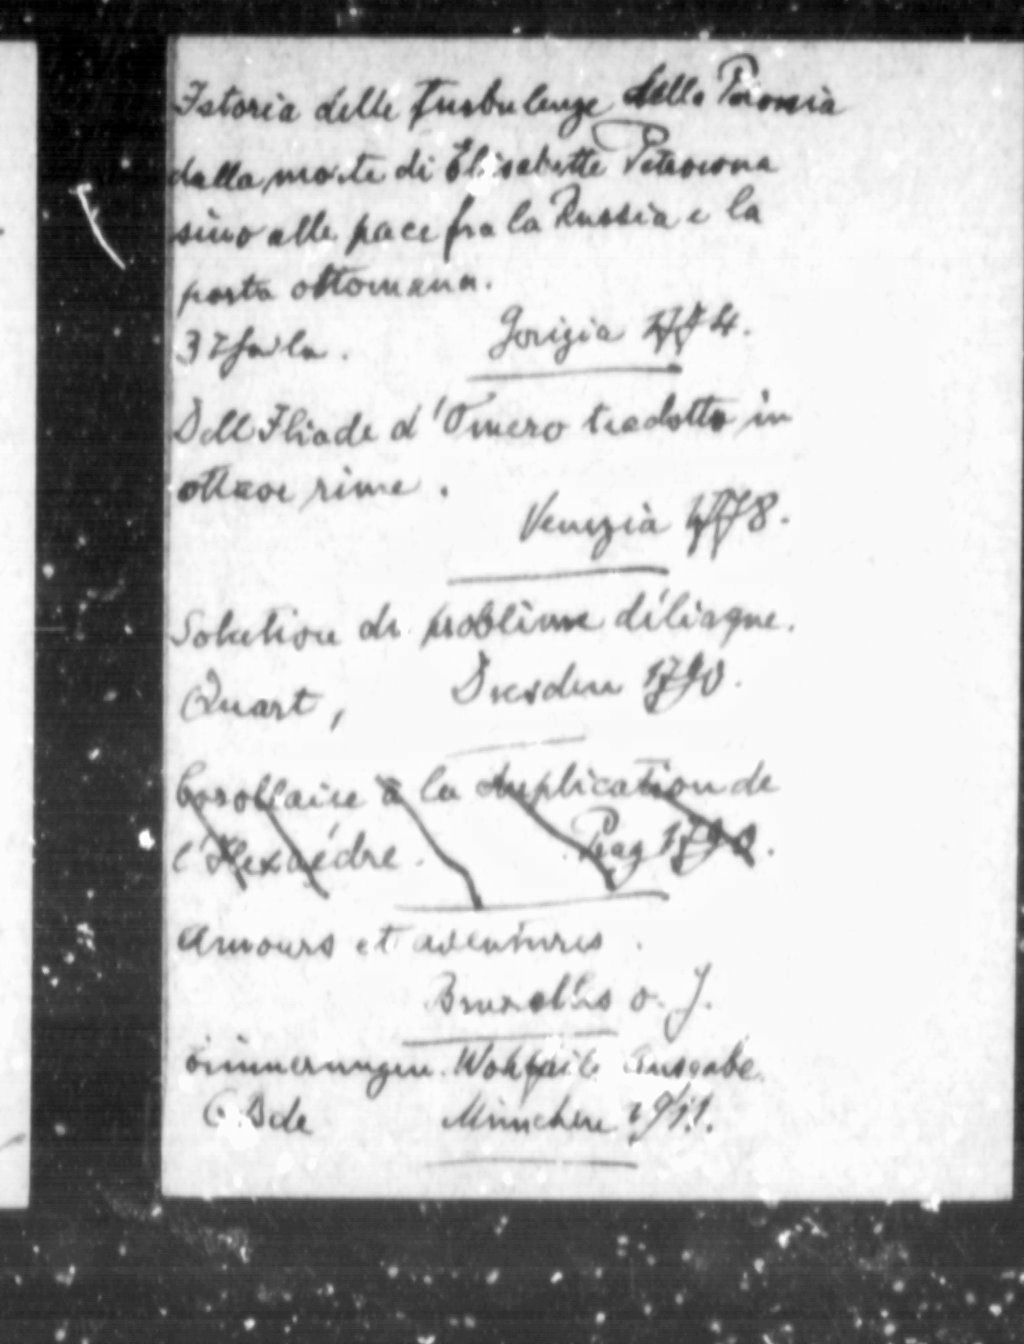 Istoria delle turbulenze della Polonia
dalla morte di Elisabetta Petrowna
sino alle pace fra la Russia e la
porta ottomana.
3 Theile. Gorizia 1774.
Dell Iliade d'Omero tradotta in
ottave rime.
Venezia 1778.
Solution du problème déliaque.
Quart, Dresden 1790.
Corollaire à la duplication de
l'Hexaèdre. Prag 1790.
Amours et aventures.
Bruxelles o. J.
Erinnerungen. Wohlfeile Ausgabe.
6 Bde München 1911.